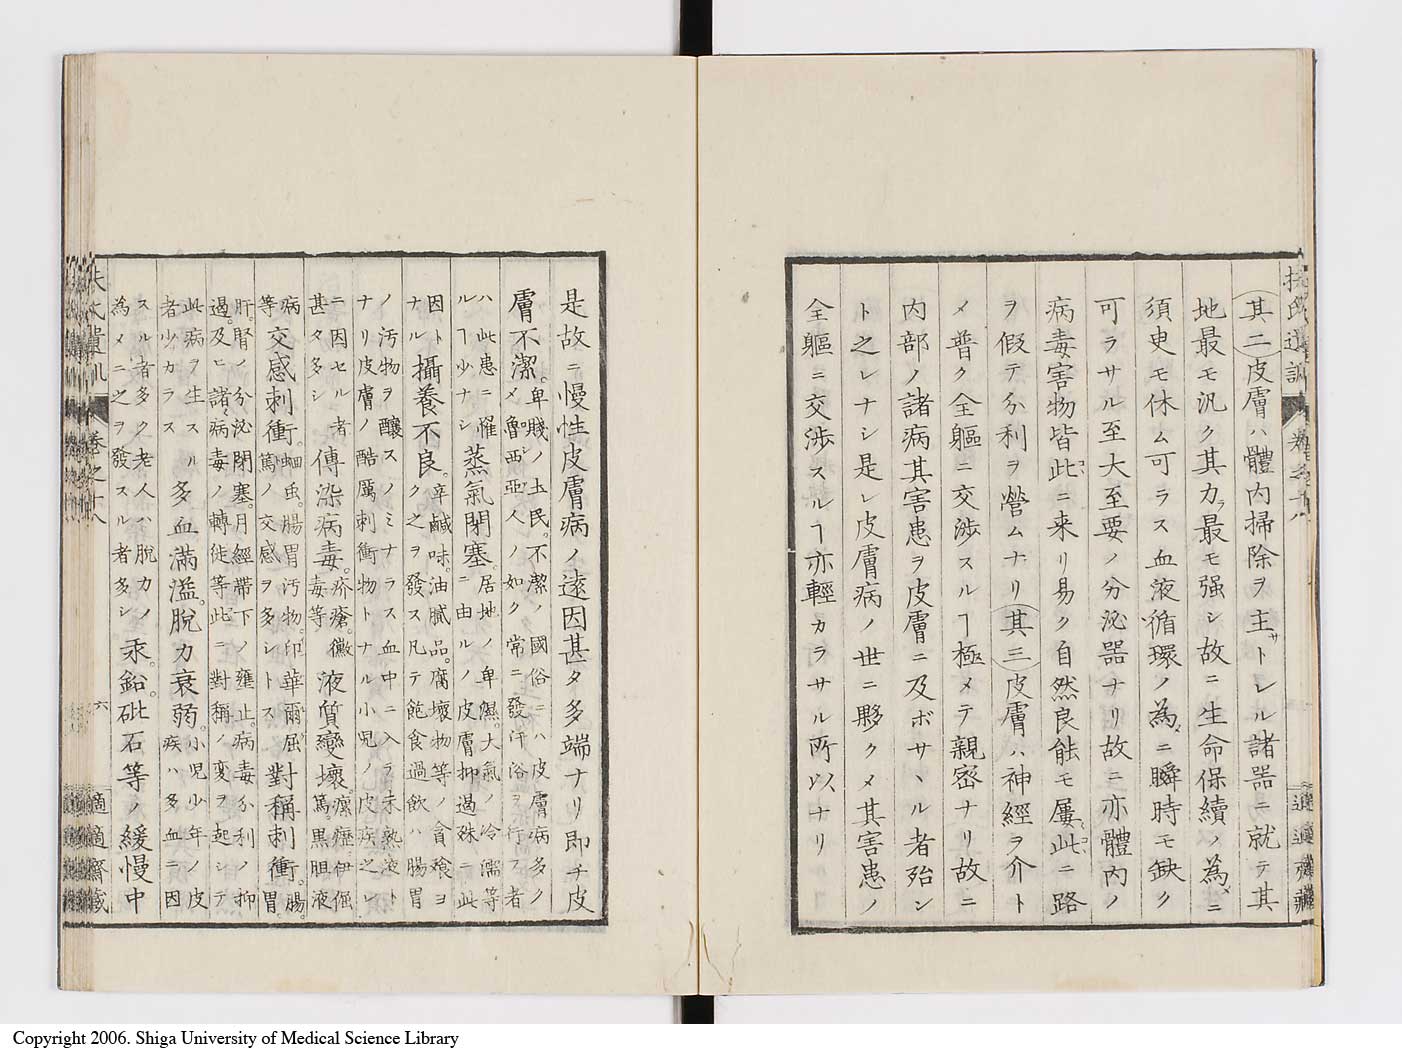 其二皮膚ハ體内掃除ヲ主サトレル諸器ニ就テ其
地最モ汎ク其力最モ强シ故ニ生命保續ノ為ニ
須臾モ休ム可ラス血液循環ノ為ニ瞬時モ缺ク
可ラサル至大至要ノ分泌器ナリ故ニ亦體内ノ
病毒害物皆此ニ来リ易ク自然良能モ屢此ニ路
ヲ假テ分利ヲ營ムナリ其三皮膚ハ神經ヲ介ト
メ普ク全軀ニ交渉スルヿ極メテ親密ナリ故ニ
内部ノ諸病其害患ヲ皮膚ニ及ボサヽル者殆ン
ト之レナシ是レ皮膚病ノ世ニ夥クメ其害患ノ
全軀ニ交渉スルヿ亦輕カラサル所以ナリ
是故ニ慢性皮膚病ノ遠因甚タ多端ナリ即チ皮
膚不潔。卑賤ノ土民。不潔ノ國俗ニハ皮膚病多ク
メ魯西亞人ノ如ク常ニ發汗浴ヲ行フ者
ハ此患ニ罹
ルヿ少ナシ
蒸氣閉塞。居地ノ卑濕。大氣ノ冷濡等
ニ由ルノ皮膚抑過殊ニ此
因ト
ナル
攝養不良。辛鹹味。油膩品。腐壞物等ノ貪飱ヨ
ク之ヲ發ス凡テ飽食過飲ハ腸胃
ノ汚物ヲ釀スノミナラス血中ニ入ラ未熟液ト
ナリ皮膚ノ酷厲刺衝物トナル小児ノ皮疾之レ
ニ因セル者
甚タ多シ
傳染病毒。疥瘡。黴
毒等
液質變壞。瘰癧伊倔
篤。黒胆液
病
等
交感刺衝。蛔虫。腸胃汚物。印華爾屈
篤ノ交感ヲ多シトス
對稱刺衝。腸。
胃
肝。腎ノ分泌閉塞。月經帶下ノ壅止。病毒分利ノ抑
過。及ヒ諸病毒ノ轉徙等此ニ對稱ノ変ヲ起シテ
此病ヲ生スル
者少カラス
多血滿溢。脫力衰弱。小児少年ノ皮
疾ハ多血ニ因
スル者多ク老人ハ脫力ノ
為メニ之ヲ發スル者多シ
汞。鉛。砒石等ノ緩慢中
卷之十八
六
適適齋藏
Copyright 2006. Shiga University of Medical Science Library